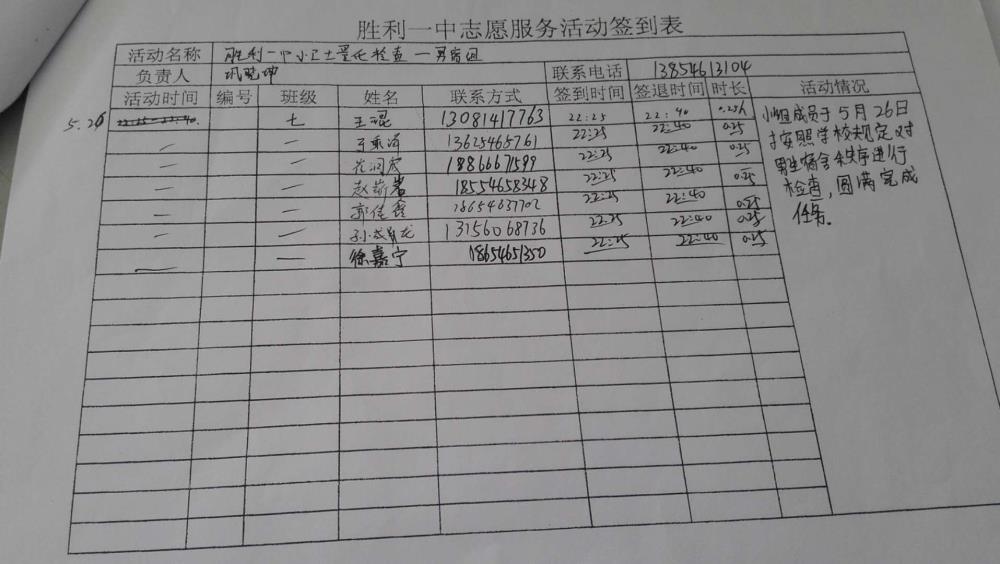 胜利一中志愿服务活动签到表
活动名称 胜利一中小卫士 检查一男宿组
负责人 巩晓坤 联系电话 13854613104
活动时间 编号 班级 姓名 联系方式 签到时间 签退时间 时长 活动情况
5.26 22:25-22:40. 七 王琨 13081417763 22:25 22:40 0.25h 小组成员于5月26日
一 一 13625465761 22:25 22:40 0.25 按照学校规定对
一 一 18866671599 22:25 22:40 0.25 男生宿舍秩序进行
一 一 赵蔚岩 18554658348 22:25 22:40 0.25 检查,圆满完成
一 一 郭佳鑫 18654637702 22:25 22:40 0.25 任务。
一 一 孙成龙 13156068736 22:25 22:40 0.25
一 一 徐嘉宁 18654651350 22:25 22:40 0.25